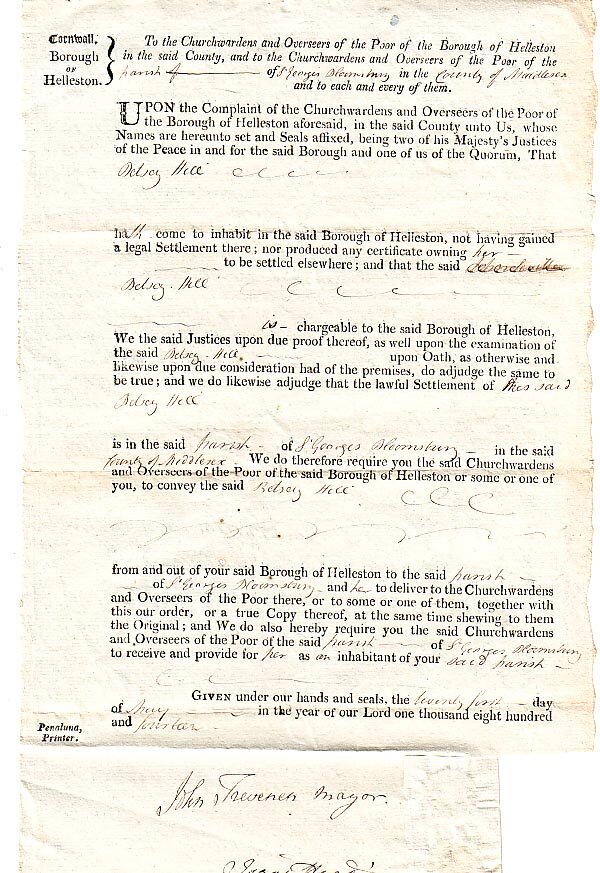 Cornwall.
Borough
OF
Helleston.
To the Churchwardens and Overseers of the Poor of the Borough of Helleston
in the said County, and to the Churchwardens and Overseers of the Poor of the
parish of St Georges Bloomsbury in the County of Middlesex
and to each and every of them.
UPON the Complaint of the Churchwardens and Overseers of the Poor of
the Borough of Helleston aforesaid, in the said County unto Us, whose
Names are hereunto set and Seals affixed, being two of his Majesty's Justices
of the Peace in and for the said Borough and one of us of the Quorum, That
Betsey Hill
hath come to inhabit in the said Borough of Helleston, not having gained
a legal Settlement there; nor produced any certificate owning her
to be settled elsewhere; and that the said
Betsey Hill
is chargeable to the said Borough of Helleston,
We the said Justices upon due proof thereof, as well upon the examination of
the said Betsey Hill upon Oath, as otherwise and
likewise upon due consideration had of the premises, do adjudge the same to
be true; and we do likewise adjudge that the lawful Settlement of the said
Betsey Hill
is in the said parish of St Georges Bloomsbury in the said
County of Middlesex We do therefore require you the said Churchwardens
and Overseers of the Poor of the said Borough of Helleston or some or one of
you, to convey the said Betsey Hill
from and out of your said Borough of Helleston to the said parish
of St Georges Bloomsbury and her to deliver to the Churchwardens
and Overseers of the Poor there, or to some or one of them, together with
this our order, or a true Copy thereof, at the same time shewing to them
the Original; and We do also hereby require you the said Churchwardens
and Overseers of the Poor of the said parish of St Georges Bloomsbury
to receive and provide for her as an inhabitant of your said parish
GIVEN under our hands and seals, the twenty first day
of May in the year of our Lord one thousand eight hundred
and fourteen
Penaluna,
Printer.
John Trevenen Mayor.